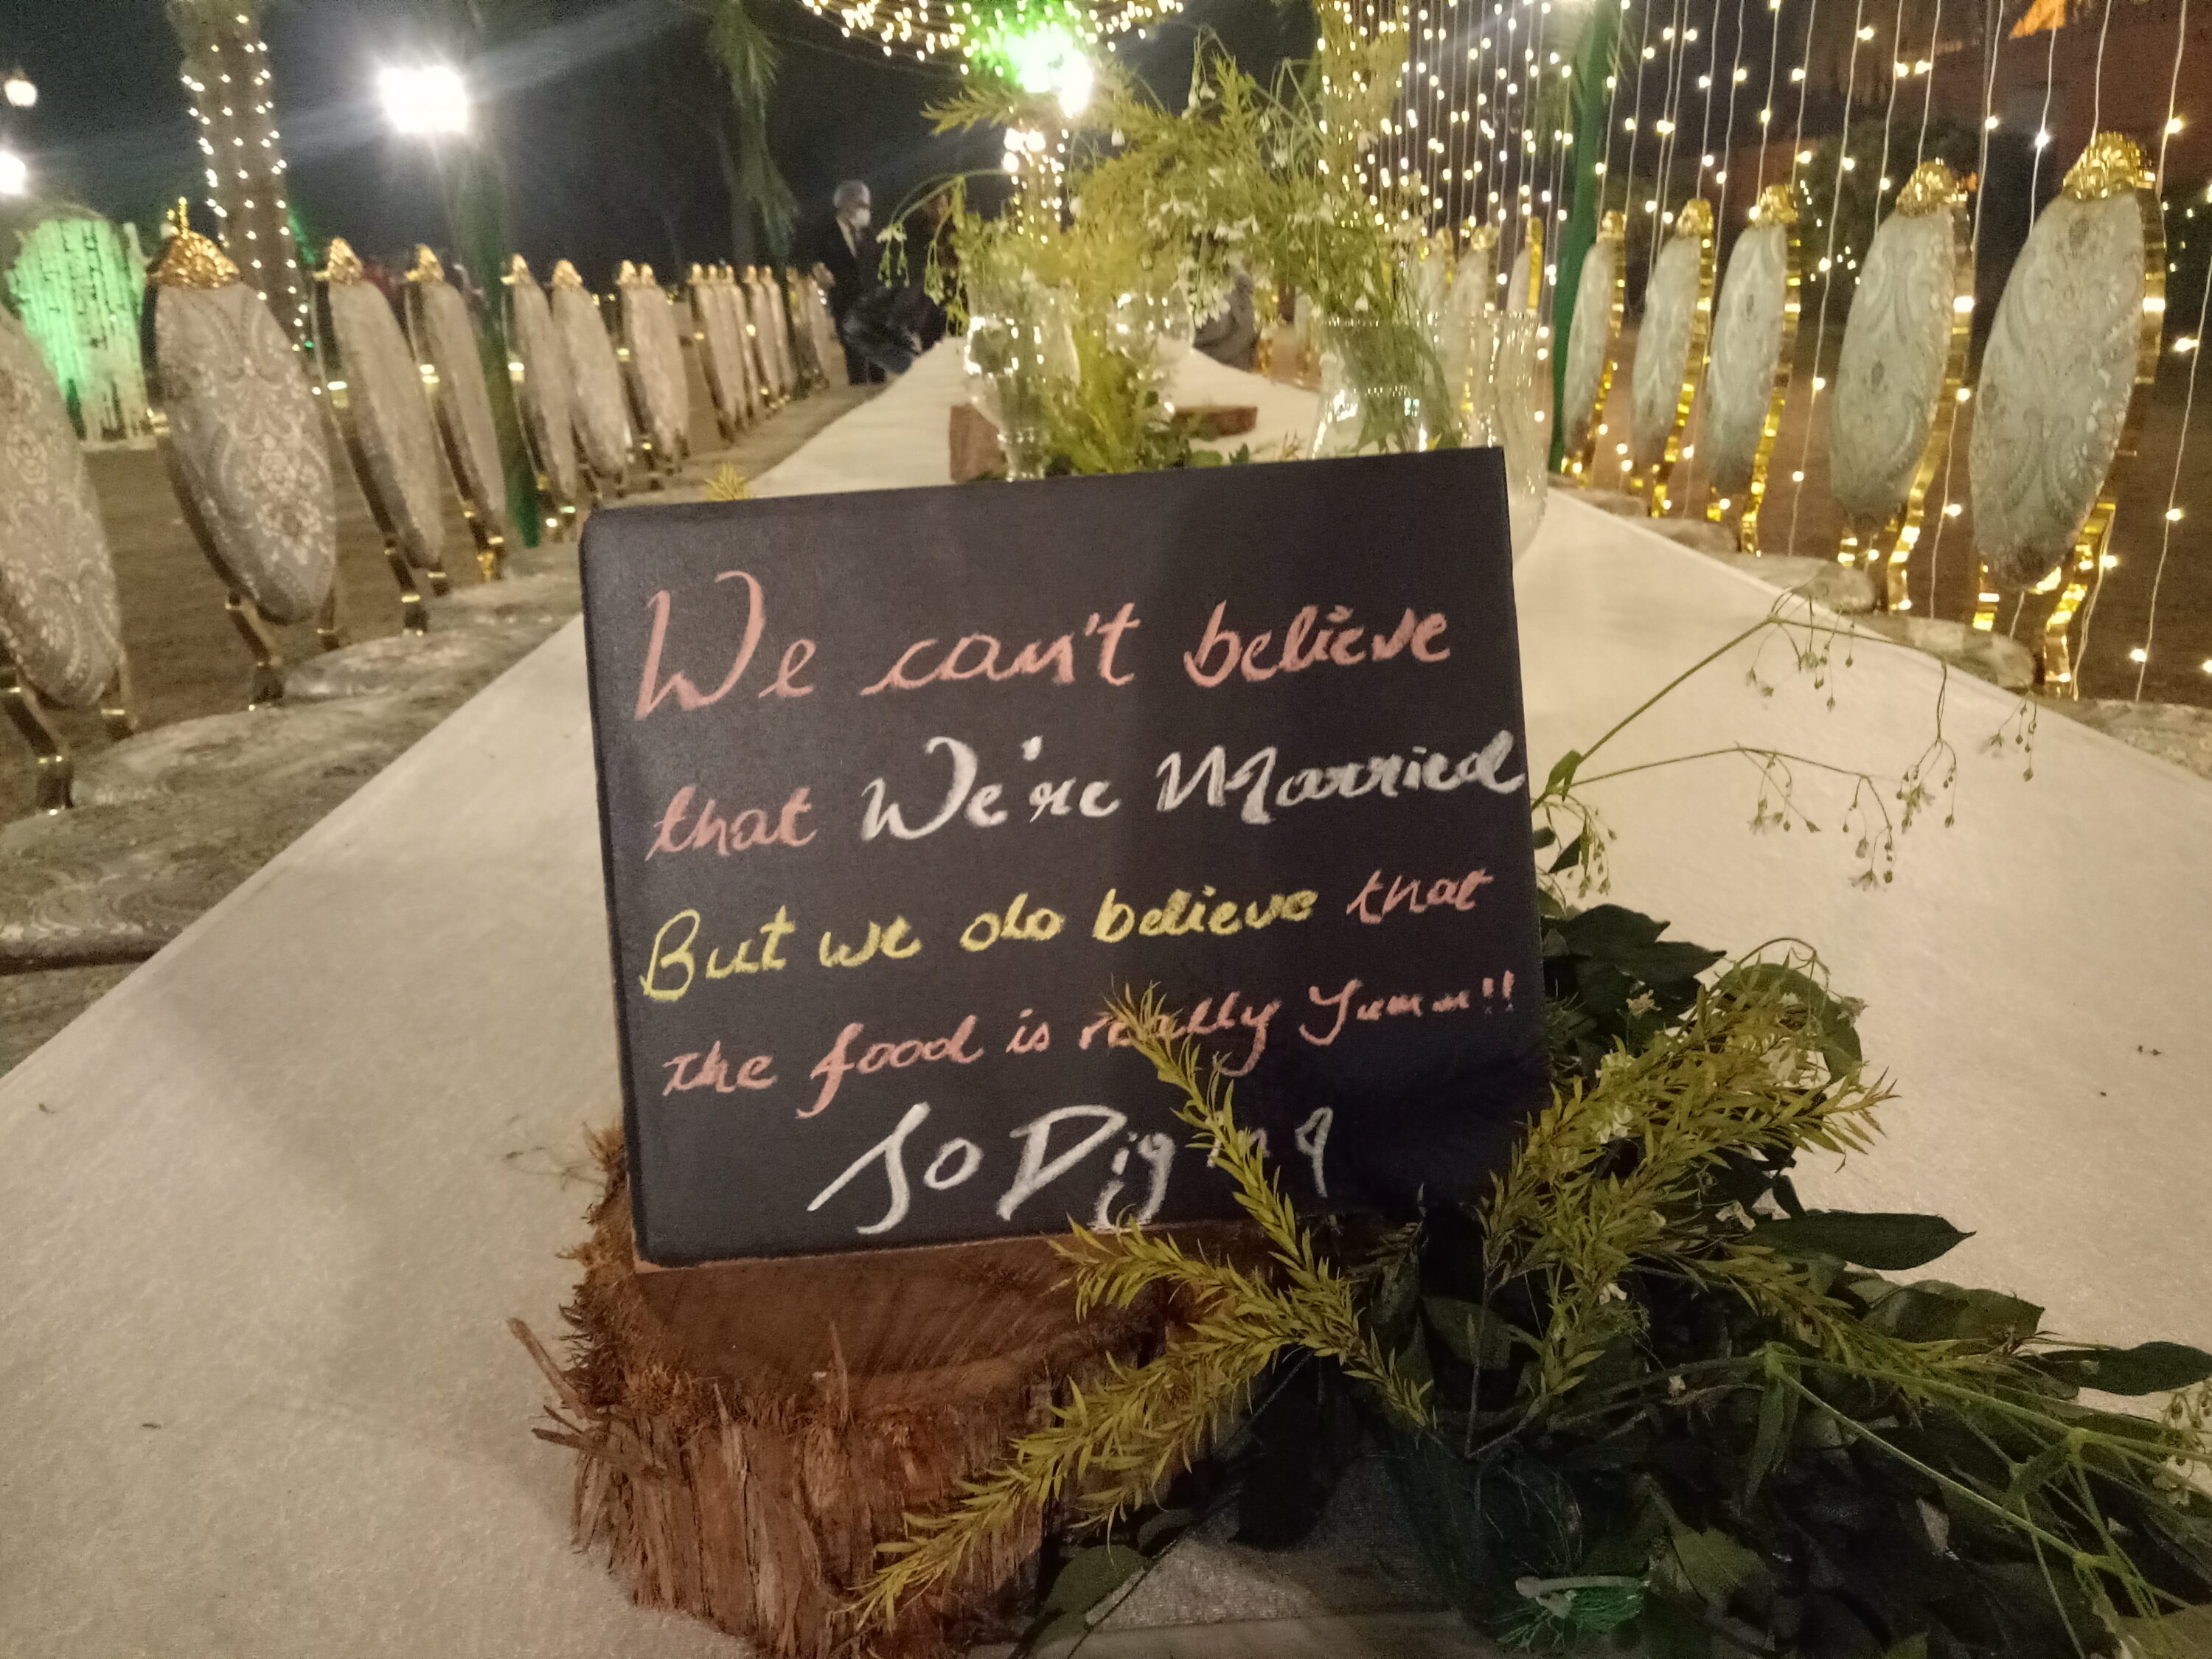 We can't believe
that We're Married
But we do believe that
the food is really Yumm!!
So Dig in